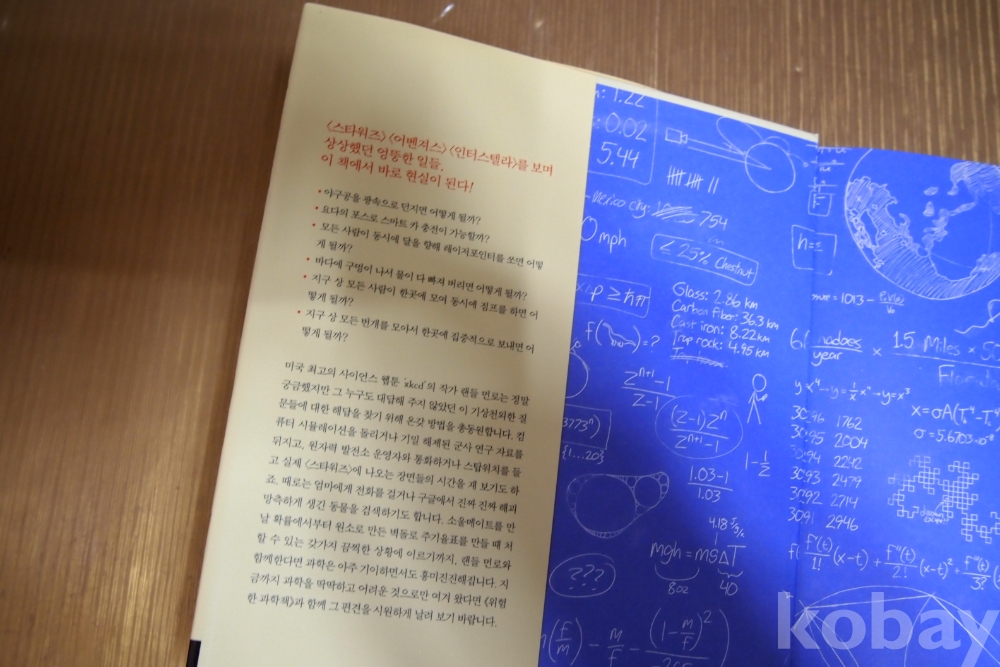 〈스타워즈〉〈어벤져스〉〈인터스텔라〉를 보며
상상했던 엉뚱한 일들,
이 책에서 바로 현실이 된다!
• 야구공을 광속으로 던지면 어떻게 될까?
• 요다의 포스로 스마트 카 충전이 가능할까?
• 모든 사람이 동시에 달을 향해 레이저포인터를 쏘면 어떻
게 될까?
• 바다에 구멍이 나서 물이 다 빠져 버리면 어떻게 될까?
• 지구 상 모든 사람이 한곳에 모여 동시에 점프를 하면 어
떻게 될까?
• 지구 상 모든 번개를 모아서 한곳에 집중적으로 보내면 어
떻게 될까?
미국 최고의 사이언스 웹툰 'xkcd'의 작가 랜들 먼로는 정말
궁금했지만 그 누구도 대답해 주지 않았던 이 기상천외한 질
문들에 대한 해답을 찾기 위해 온갖 방법을 총동원합니다. 컴
퓨터 시뮬레이션을 돌리거나 기밀 해제된 군사 연구 자료를
뒤지고, 원자력 발전소 운영자와 통화하거나 스탑워치를 들
고 실제 〈스타워즈〉에 나오는 장면들의 시간을 재 보기도 하
죠. 때로는 엄마에게 전화를 걸거나 구글에서 진짜 진짜 해괴
망측하게 생긴 동물을 검색하기도 합니다. 소울메이트를 만
날 확률에서부터 원소로 만든 벽돌로 주기율표를 만들 때 처
할 수 있는 갖가지 끔찍한 상황에 이르기까지, 랜들 먼로와
함께한다면 과학은 아주 기이하면서도 흥미진진해집니다. 지
금까지 과학을 딱딱하고 어려운 것으로만 여겨 왔다면 《위험
한 과학책》과 함께 그 편견을 시원하게 날려 보기 바랍니다.
: 1.22
: 0.02
5.44
mexico city: 754
mph
≤ 25% Chestnut
x·p ≥ ℏ/π
Glass: 2.86 km
Carbon fiber: 36.3 km
Cast iron: 8.22 km
Trap rock: 4.95 km
f( )=?
z^(n+1)-1
z-1
(z-1)z^n
z^(n+1)-1
3773^n)
{1...20}
1-1/2
1.03-1
1.03
4.18 J/g/K
mgh = msΔT
8oz 40
???
(f/m) - m/f - (1-m/f)^2
h=
= 1013 -
nadoes
year × 15 Miles × 5
Florida
y x^4 → y = 1/x x^4 → y=x^3
3096 1762
3095 2004
3094 2242
3093 2479
3092 2714
3091 2946
x=σA(T^4-T
σ=5.6703
f( f'(t)/1! (x-t) + f''(t)/2! (x-t)^2 + f'''(t)/3!
kobay